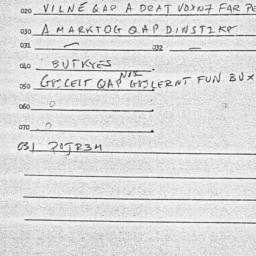 020 VILNE GAP A DRAT VOXNT FAR PE
030 A MARKTOG QAP DINSTIK
031 — 032 —
040 BUTKYES
NIZ
050 GECELT QAP GOJLERNT FUN BUX
060 0
070 0
031